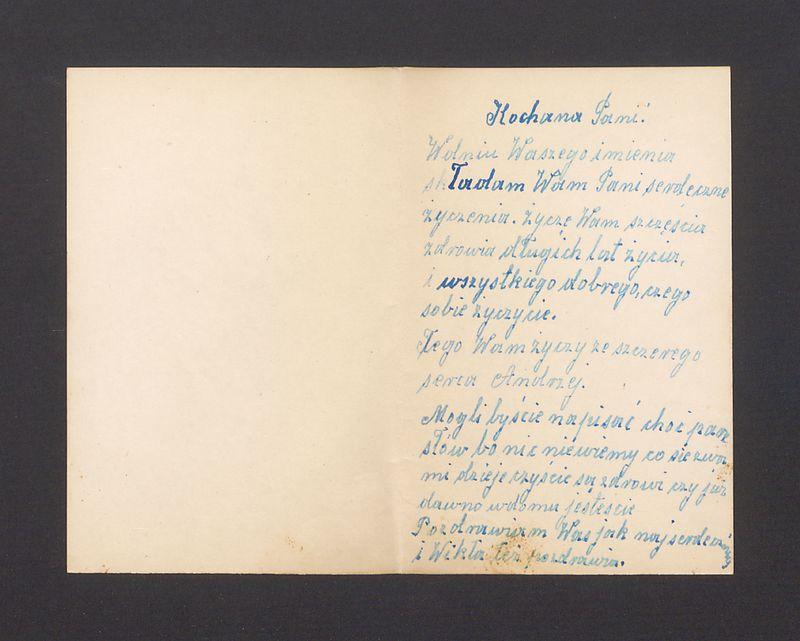 Kochana Pani!
Wdniu Waszego imienia
składam Wam Pani serdeczne
życzenia. Życzę Wam szczęścia
zdrowia długich lat życia,
i wszystkiego dobrego, czego
sobie życzycie.
Tego Wam życzy ze szczerego
serca Andrzej.
Mogli byście napisać choć parę
słów bo nic niewiemy co się zwa
mi dzieje czyście są zdrowi czy już
dawno wdomu jesteście
Pozdrawiam Was jak najserdeczniej
i Wikta też pozdrawia.